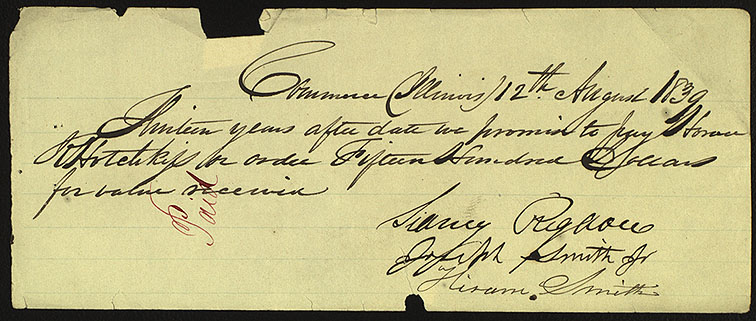 Commerce (Illinois) 12th August 1839
Thirteen years after date we promise to pay Horace
R Hotchkiss or order Fifteen Hundred Dollars
for value received
Paid
Sidney Rigdon
Joseph Smith Jr
Hiram Smith